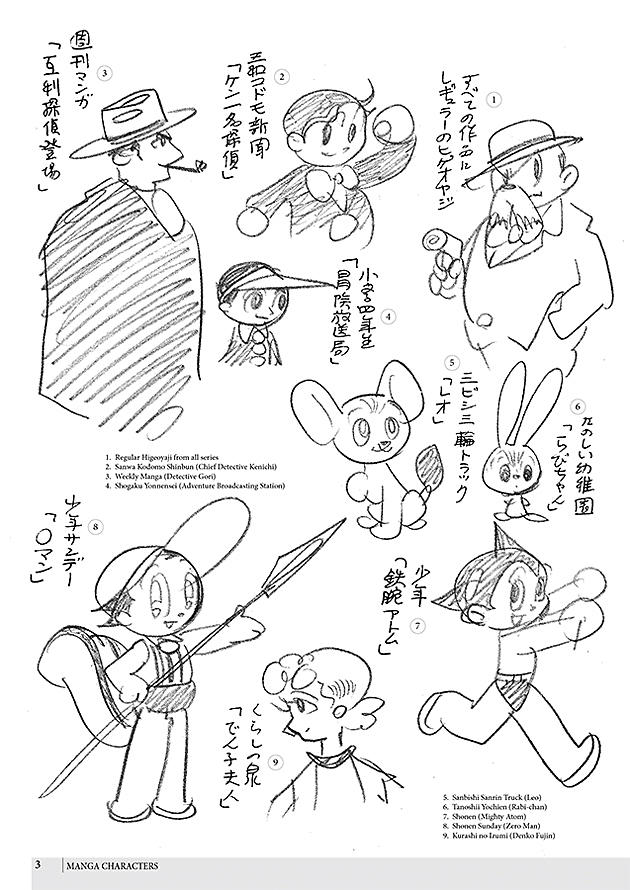 すべての作品に
レギュラーのヒゲオヤジ
1
2
三和コドモ新聞
「ケン一名探偵」
3
週刊マンガ
「互利探偵登場」
小学四年生
「冒険放送局」
4
5
ミビシ三輪トラック
「レオ」
6
たのしい幼稚園
「らびちゃん」
1. Regular Higeoyaji from all series
2. Sanwa Kodomo Shinbun (Chief Detective Kenichi)
3. Weekly Manga (Detective Gori)
4. Shogaku Yonnensei (Adventure Broadcasting Station)
少年サンデー
「〇マン」
8
少年
「鉄腕アトム」
7
くらしの泉
「でん子夫人」
9
5. Sanbishi Sanrin Truck (Leo)
6. Tanoshii Yochien (Rabi-chan)
7. Shonen (Mighty Atom)
8. Shonen Sunday (Zero Man)
9. Kurashi no Izumi (Denko Fujin)
3 MANGA CHARACTERS